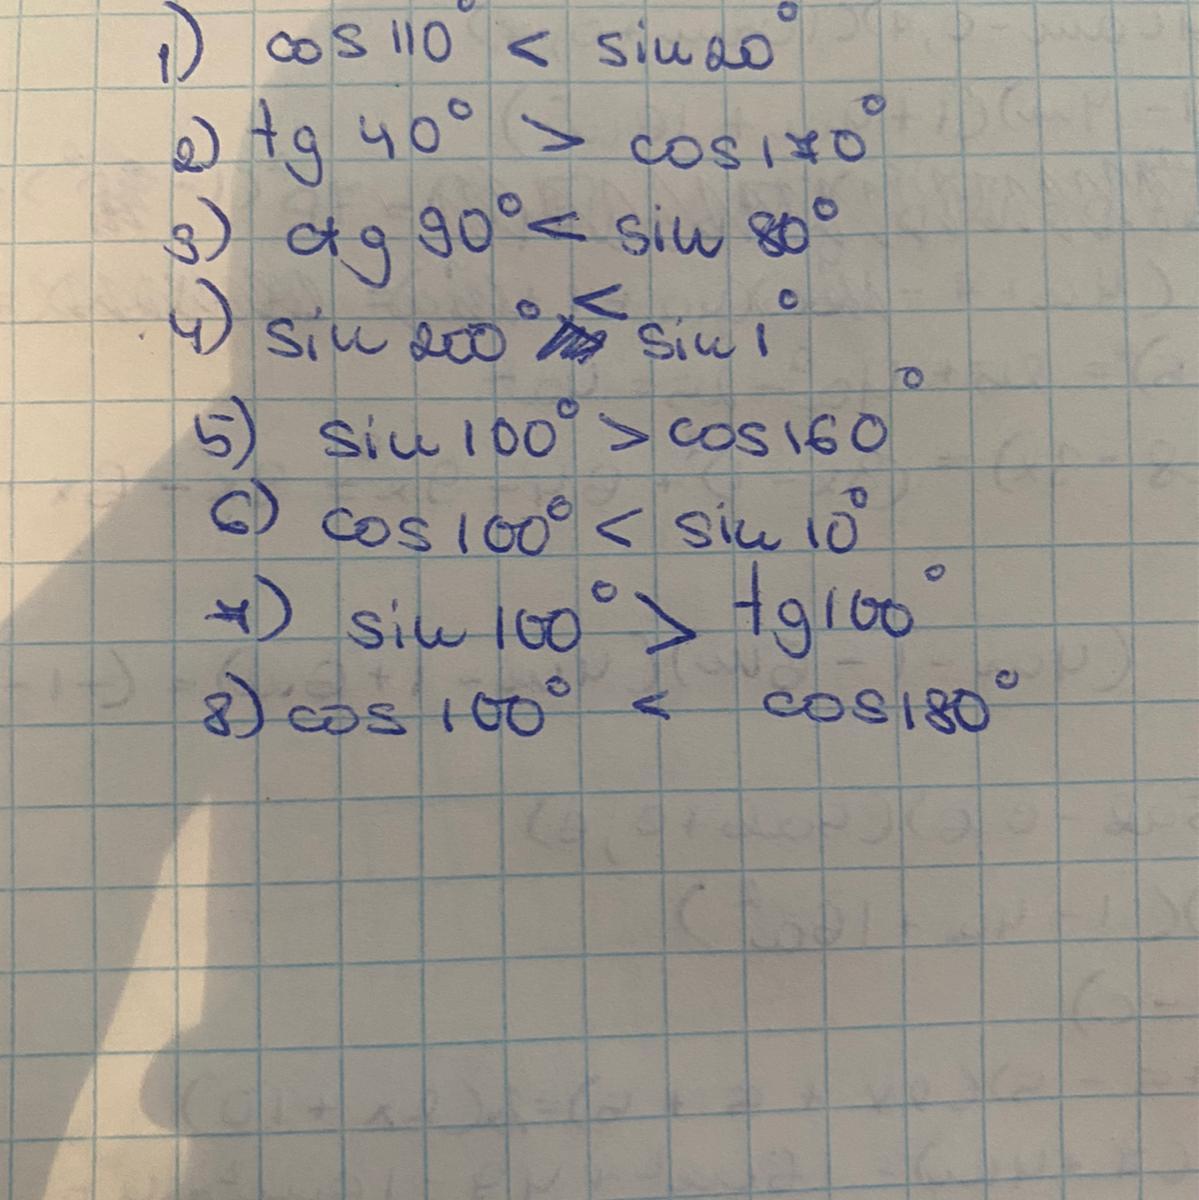 1) cos 110° < sin 20°
2) tg 40° > cos 170°
3) ctg 90° < sin 80°
4) sin 200° < sin 1°
5) sin 100° > cos 160°
6) cos 100° < sin 10°
7) sin 100° > tg 100°
8) cos 100° < cos 180°